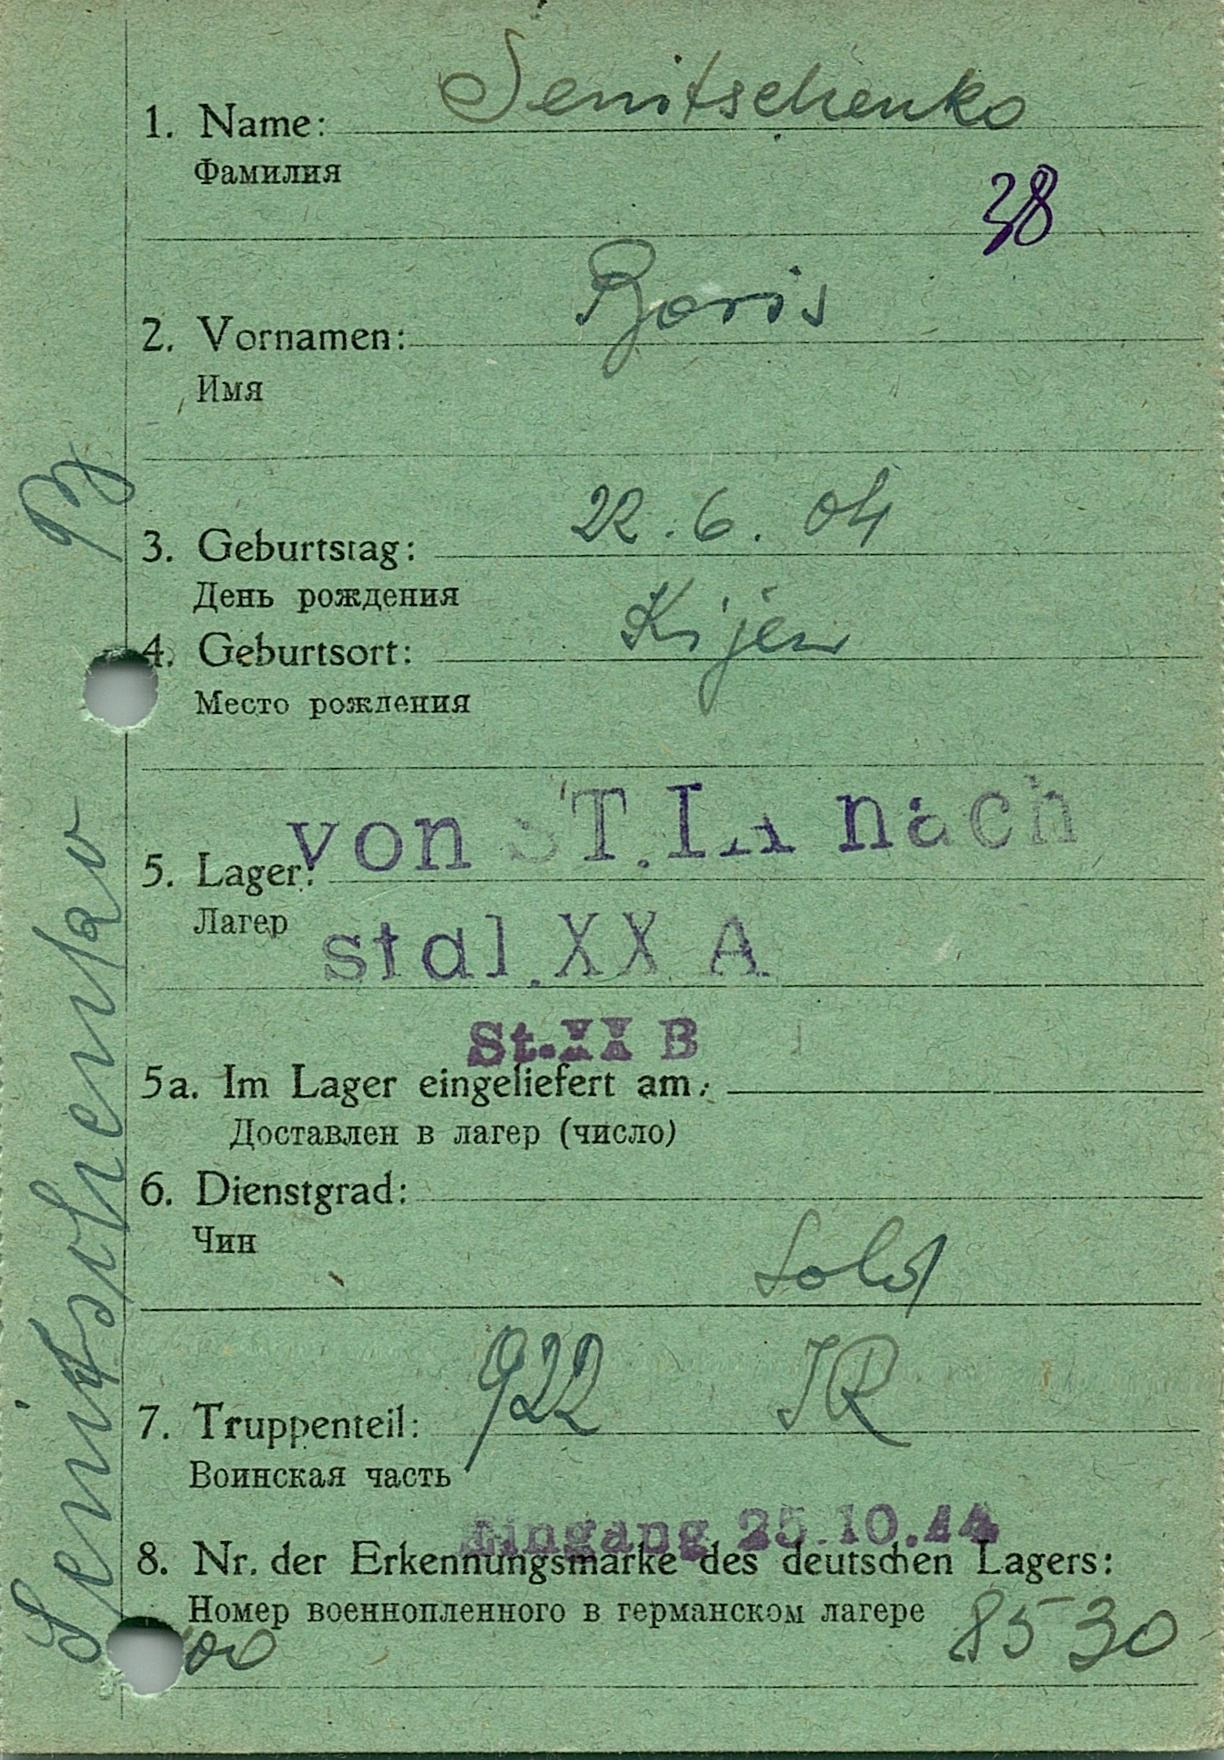 1. Name: Senitschenko
Фамилия
38
2. Vornamen: Boris
Имя
3. Geburtstag: 22.6.04
День рождения
4. Geburtsort: Kijew
Место рождения
von ST.IA nach
5. Lager:
Лагер
stal.XX A
St.XX B
5a. Im Lager eingeliefert am:
Доставлен в лагер (число)
6. Dienstgrad:
Чин
Sold
7. Truppenteil: 922 IR
Воинская часть
Eingang 25.10.44
8. Nr. der Erkennungsmarke des deutschen Lagers:
Номер военнопленного в германском лагере 8530
Senitschenko B